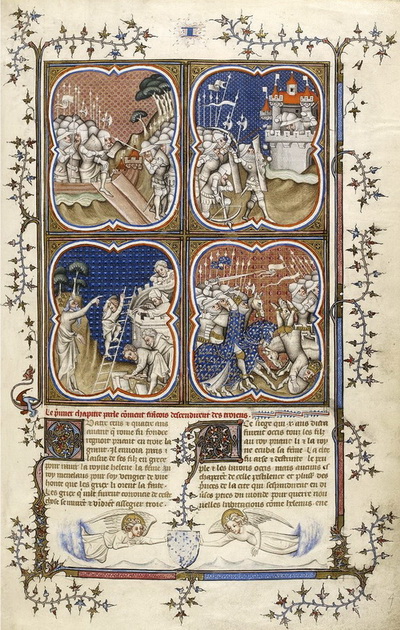 I
Le premier chapitre parle coment francois descendirent des troiens
Quatre cens et quatre ans
avant que rome fu fondee
regnoit priant en troie la
grant. Il envoia paris
lainsne de ses filz en grece
pour ravir la royne helene la feme au
roy menelaus pour soy vengier de une
honte que les griex li orent ia faite.
Les griex qui furent de ceste
chose sesmurent et vindrent assegier troie
A Ce siege qui x ans dura
furent occis touz les filz
au roy priant li et la roy
ne ecuba sa feme. La cite
fu arse et destruite le peu
ple et les barons occis mais aucuns es
chaperent de celle pestilence et plus des
princes de la cite qui sespandirent en di
verses parties du monde pour querre nou
velles habitations come helenus ene